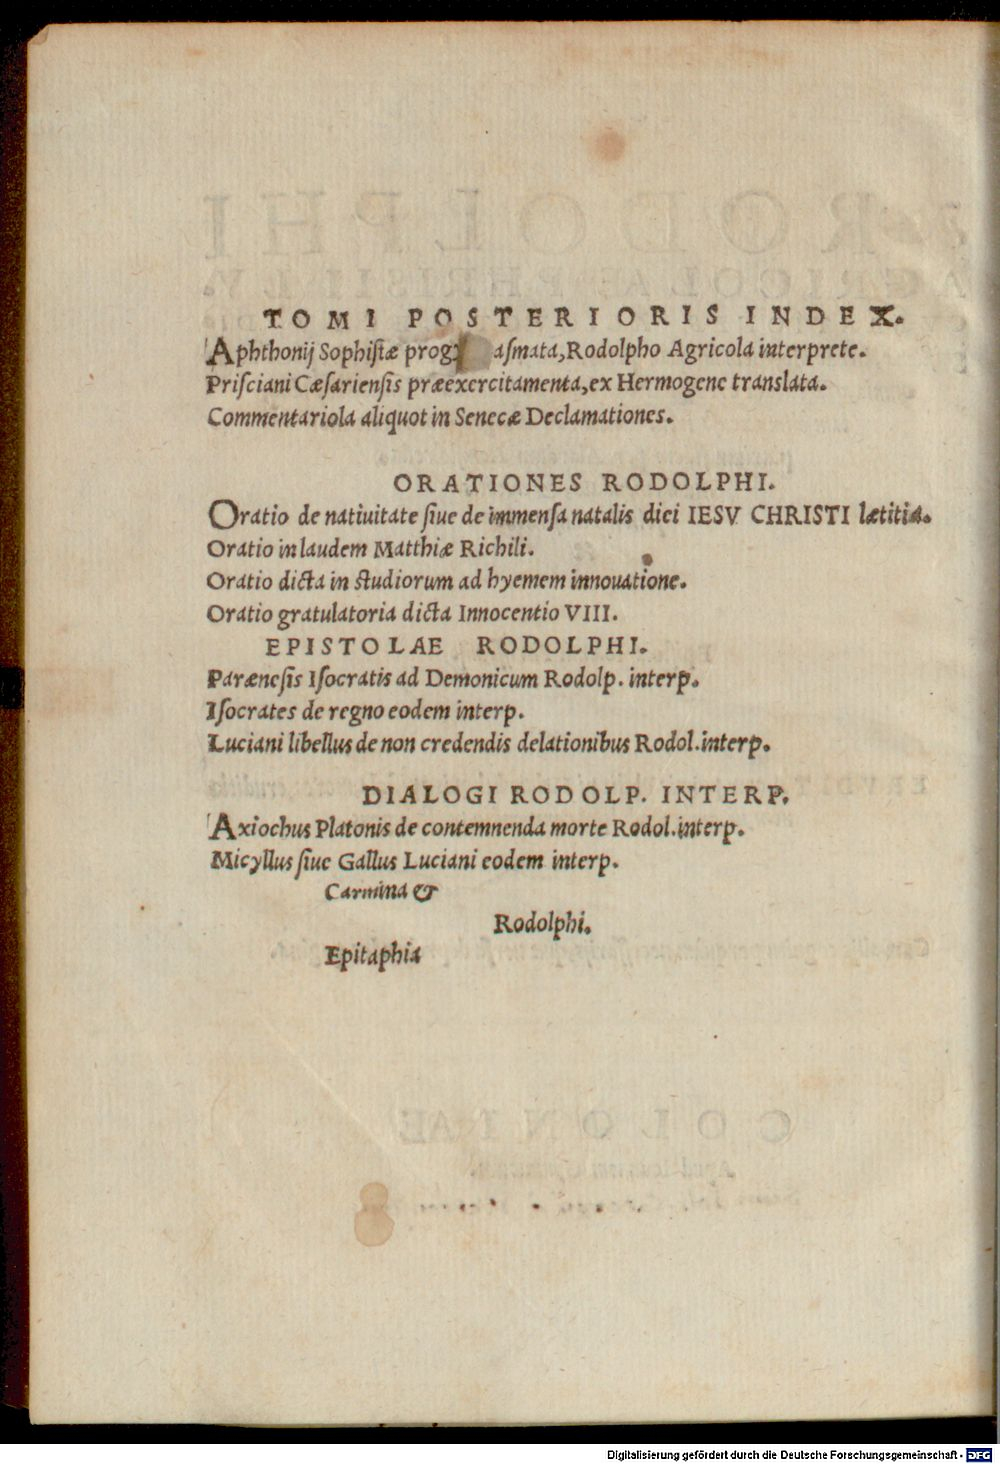 TOMI POSTERIORIS INDEX.
Aphthonij Sophiſtæ prog aſmata, Rodolpho Agricola interprete.
Priſciani Cæſarienſis præexercitamenta, ex Hermogene translata.
Commentariola aliquot in Senecæ Declamationes.
ORATIONES RODOLPHI.
Oratio de natiuitate ſiue de immenſa natalis diei IESV CHRISTI lætitia.
Oratio in laudem Matthiæ Richili.
Oratio dicta in studiorum ad hyemem innouatione.
Oratio gratulatoria dicta Innocentio VIII.
EPISTOLAE RODOLPHI.
Paræneſis Iſocratis ad Demonicum Rodolp. interp.
Iſocrates de regno eodem interp.
Luciani libellus de non credendis delationibus Rodol. interp.
DIALOGI RODOLP. INTERP.
Axiochus Platonis de contemnenda morte Rodol. interp.
Micyllus ſiue Gallus Luciani eodem interp.
Carmina &
Rodolphi.
Epitaphia
Digitalisierung gefördert durch die Deutsche Forschungsgemeinschaft - DFG